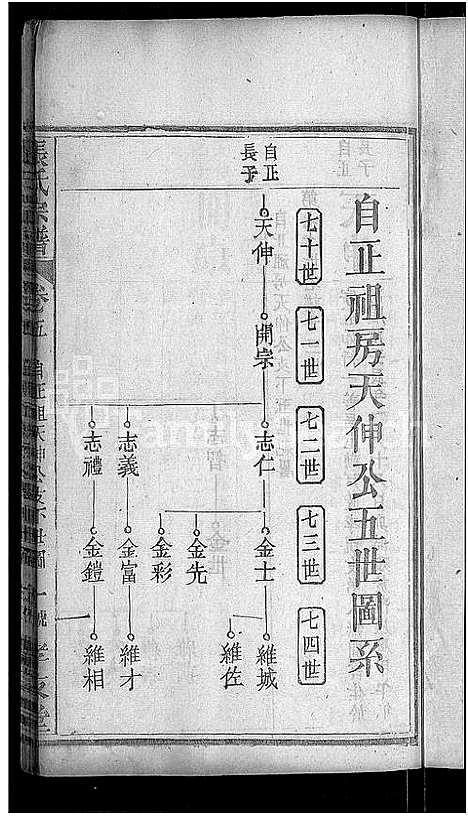 自正祖房天伸公五世圖系
七十世
七一世
七二世
七三世
七四世
自正
長子
天伸
開宗
志仁
志義
志禮
金士
金先
金彩
金富
金鎧
維城
維佐
維才
維相
張氏宗譜
卷五